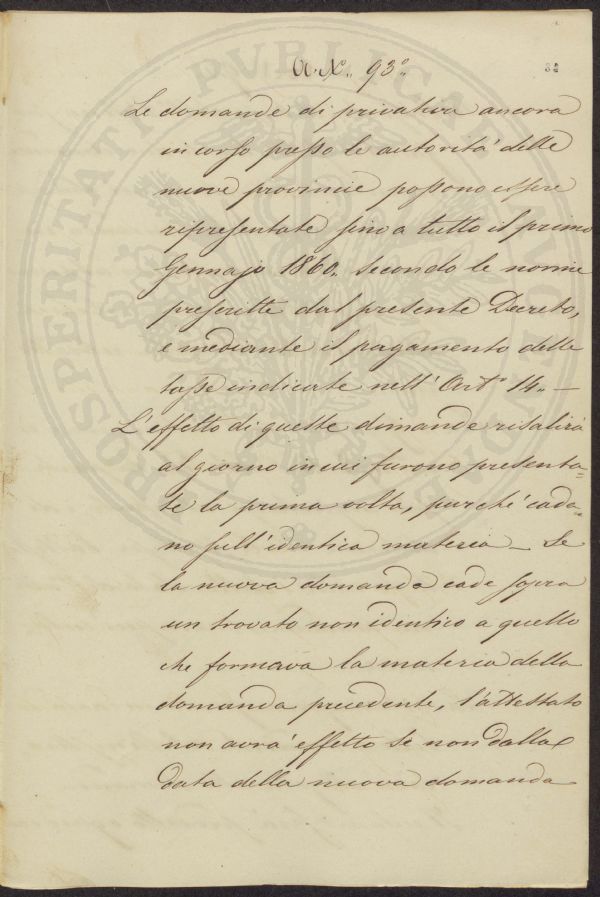 A.X. 93°.
32
Le domande di privativa ancora
in corso presso le autorità delle
nuove provincie possono essere
ripresentate sino a tutto il primo
Gennajo 1860. secondo le norme
prescritte dal presente Decreto,
e mediante il pagamento delle
tasse indicate nell'Art° 14. —
L'effetto di queste dimande risalirà
al giorno in cui furono presenta=
te la prima volta, purchè cada=
no sull'identica materia — Se
la nuova domanda cade sopra
un trovato non identico a quello
che formava la materia della
domanda precedente, l'attestato
non avrà effetto se non dalla
data della nuova domanda